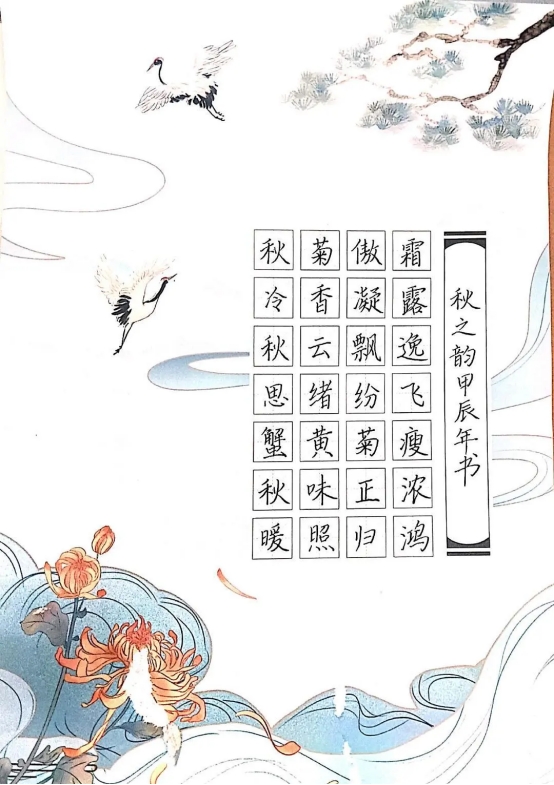 秋菊傲霜
冷香凝露
秋云飘逸
思绪纷飞
蟹黄菊瘦
秋味正浓
暖照归鸿
秋之韵甲辰年书